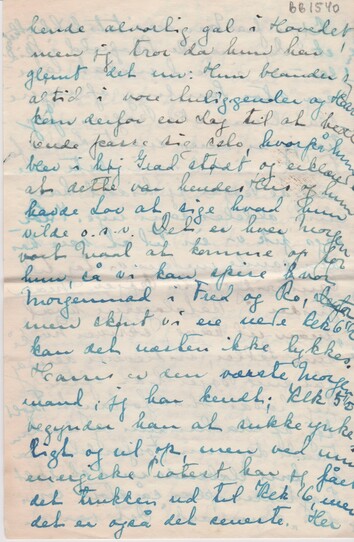 BB1540
hende alvorlig gal i Hovedet,
men jeg tror da hun har
glemt det nu. Hun blander sig
altid i vore huslige og
kom derfor en Dag til at bede
hende passe sig selv, hvorpaa hun
blev i høj Grad stødt og erklærede
at dette var hendes Hus og hun
havde Lov at sige hvad hun
vilde o.s.v. Det er hver Morgen
vort Maal at komme op før
hun, så vi kan spise hvort
Morgenmad i Fred og Ro,
men skønt vi ere nede Klk 6
kan det næsten ikke lykkes.
Harris er den værste Morgen-
mand, jeg har kendt; Klk 5
begynder han at sukke ynke-
ligt og vil op, men ved min
energiske Protest har jeg fået
det trukken ud til Klk 6, men
det er også det seneste. Her